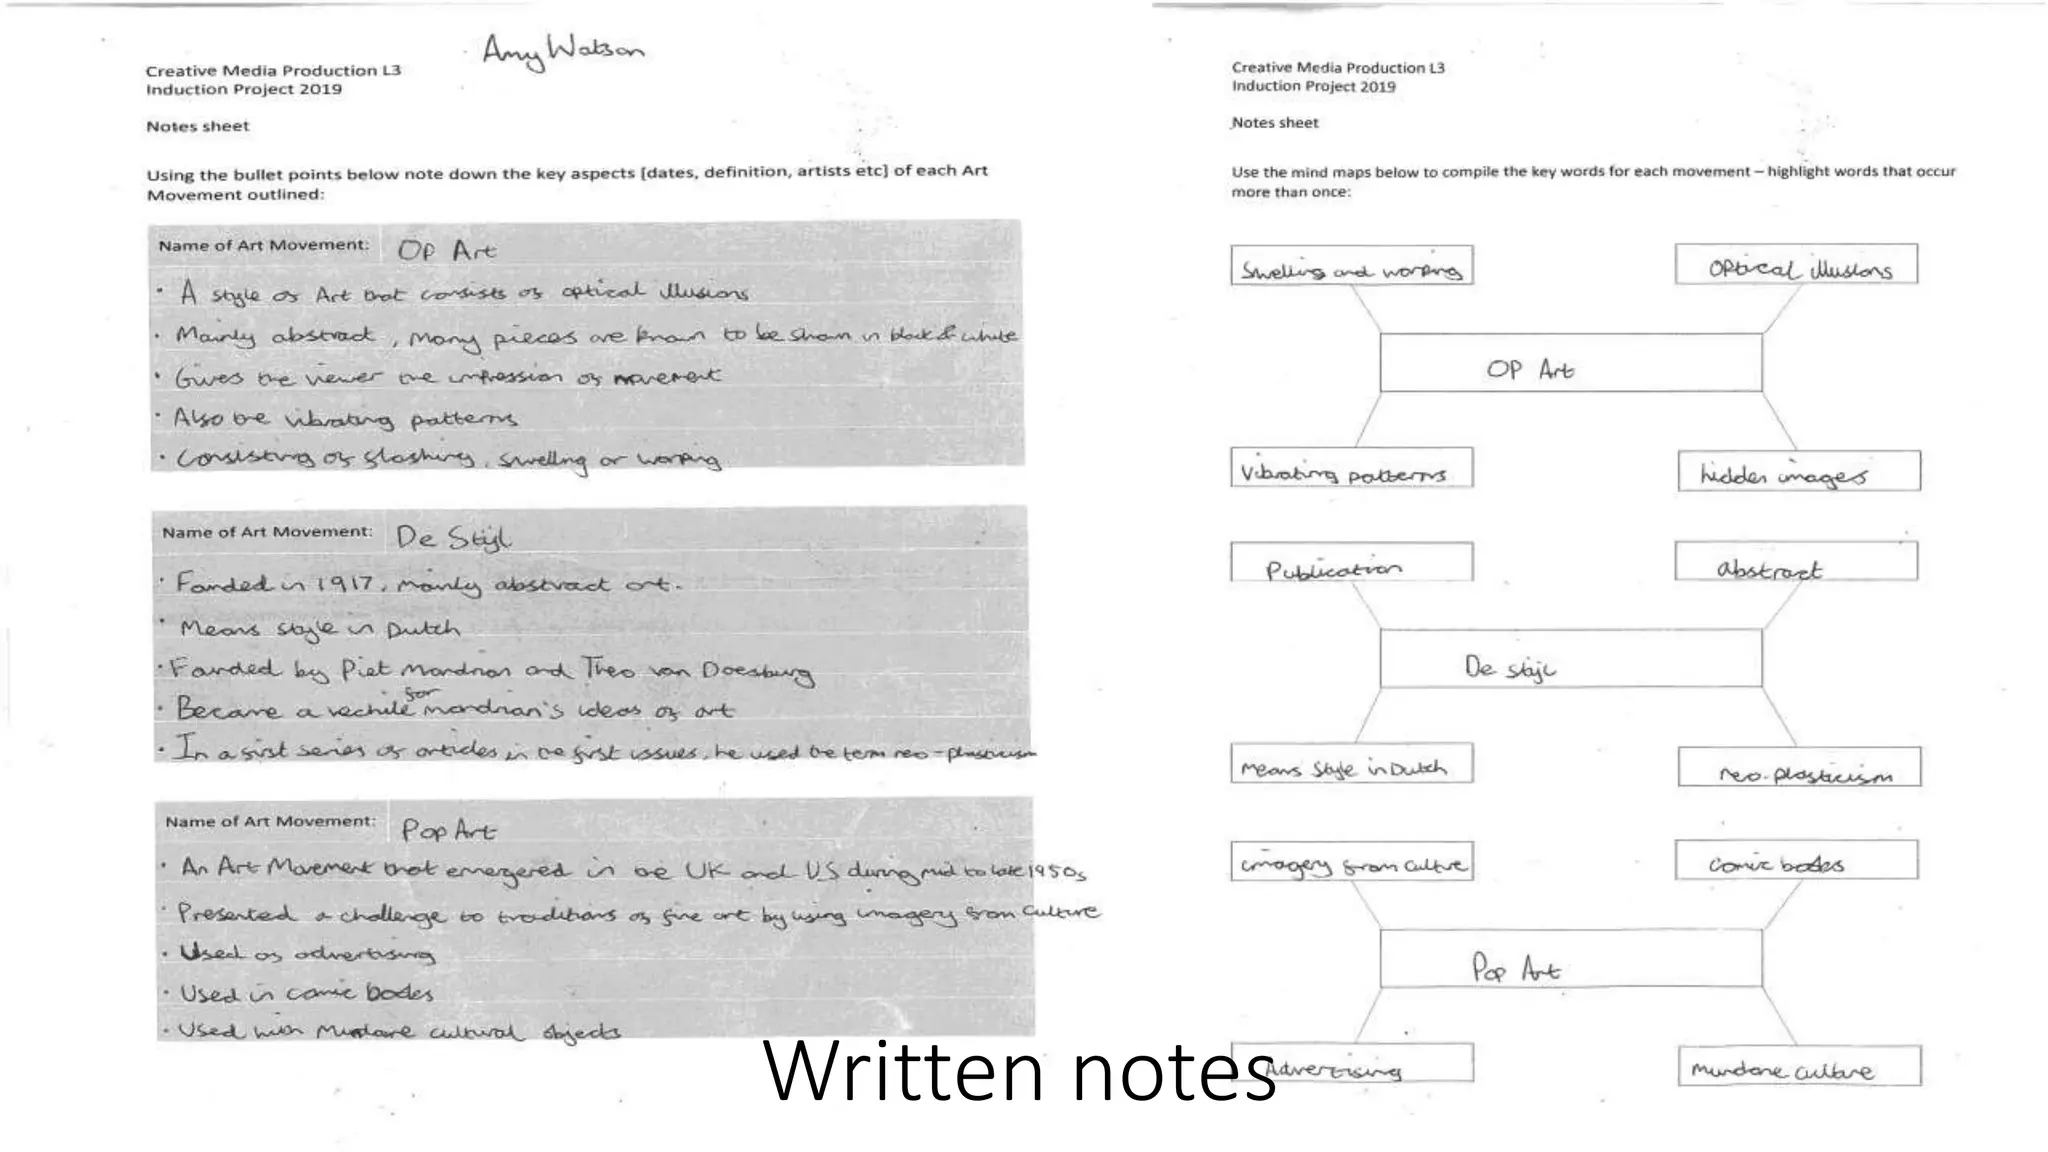 Amy Watson
Creative Media Production L3
Induction Project 2019
Notes sheet
Using the bullet points below note down the key aspects [dates, definition, artists etc] of each Art
Movement outlined:
Name of Art Movement: Op Art
· A style of Art that consists of optical illusions
· Mainly abstract, many pieces are known to be shown in black & white
· Gives the viewer the impression of movement
· Also the vibrating patterns
· Consisting of flashing, swelling or warping
Name of Art Movement: De Stijl
· Founded in 1917, mainly abstract art.
· Means style in Dutch
· Founded by Piet Mondrian and Theo van Doesburg
· Became a vechile for mondrian's ideas of art
· In a first series of articles in the first issues, he used the term neo-plasticism
Name of Art Movement: Pop Art
· An Art Movement that emergered in the UK and US during mid to late 1950s
· Presented a challenge to traditions of fine art by using imagery from Culture
· Used as advertising
· Used in comic books
· Used with Mundane cultural objects
Creative Media Production L3
Induction Project 2019
Notes sheet
Use the mind maps below to compile the key words for each movement – highlight words that occur
more than once:
Swelling and warping
Optical illusions
OP Art
Vibrating patterns
hidden images
Publication
abstract
De stijl
means Style in Dutch
neo-plasticism
imagery from Culture
Comic books
Pop Art
Advertising
mundane culture
Written notes